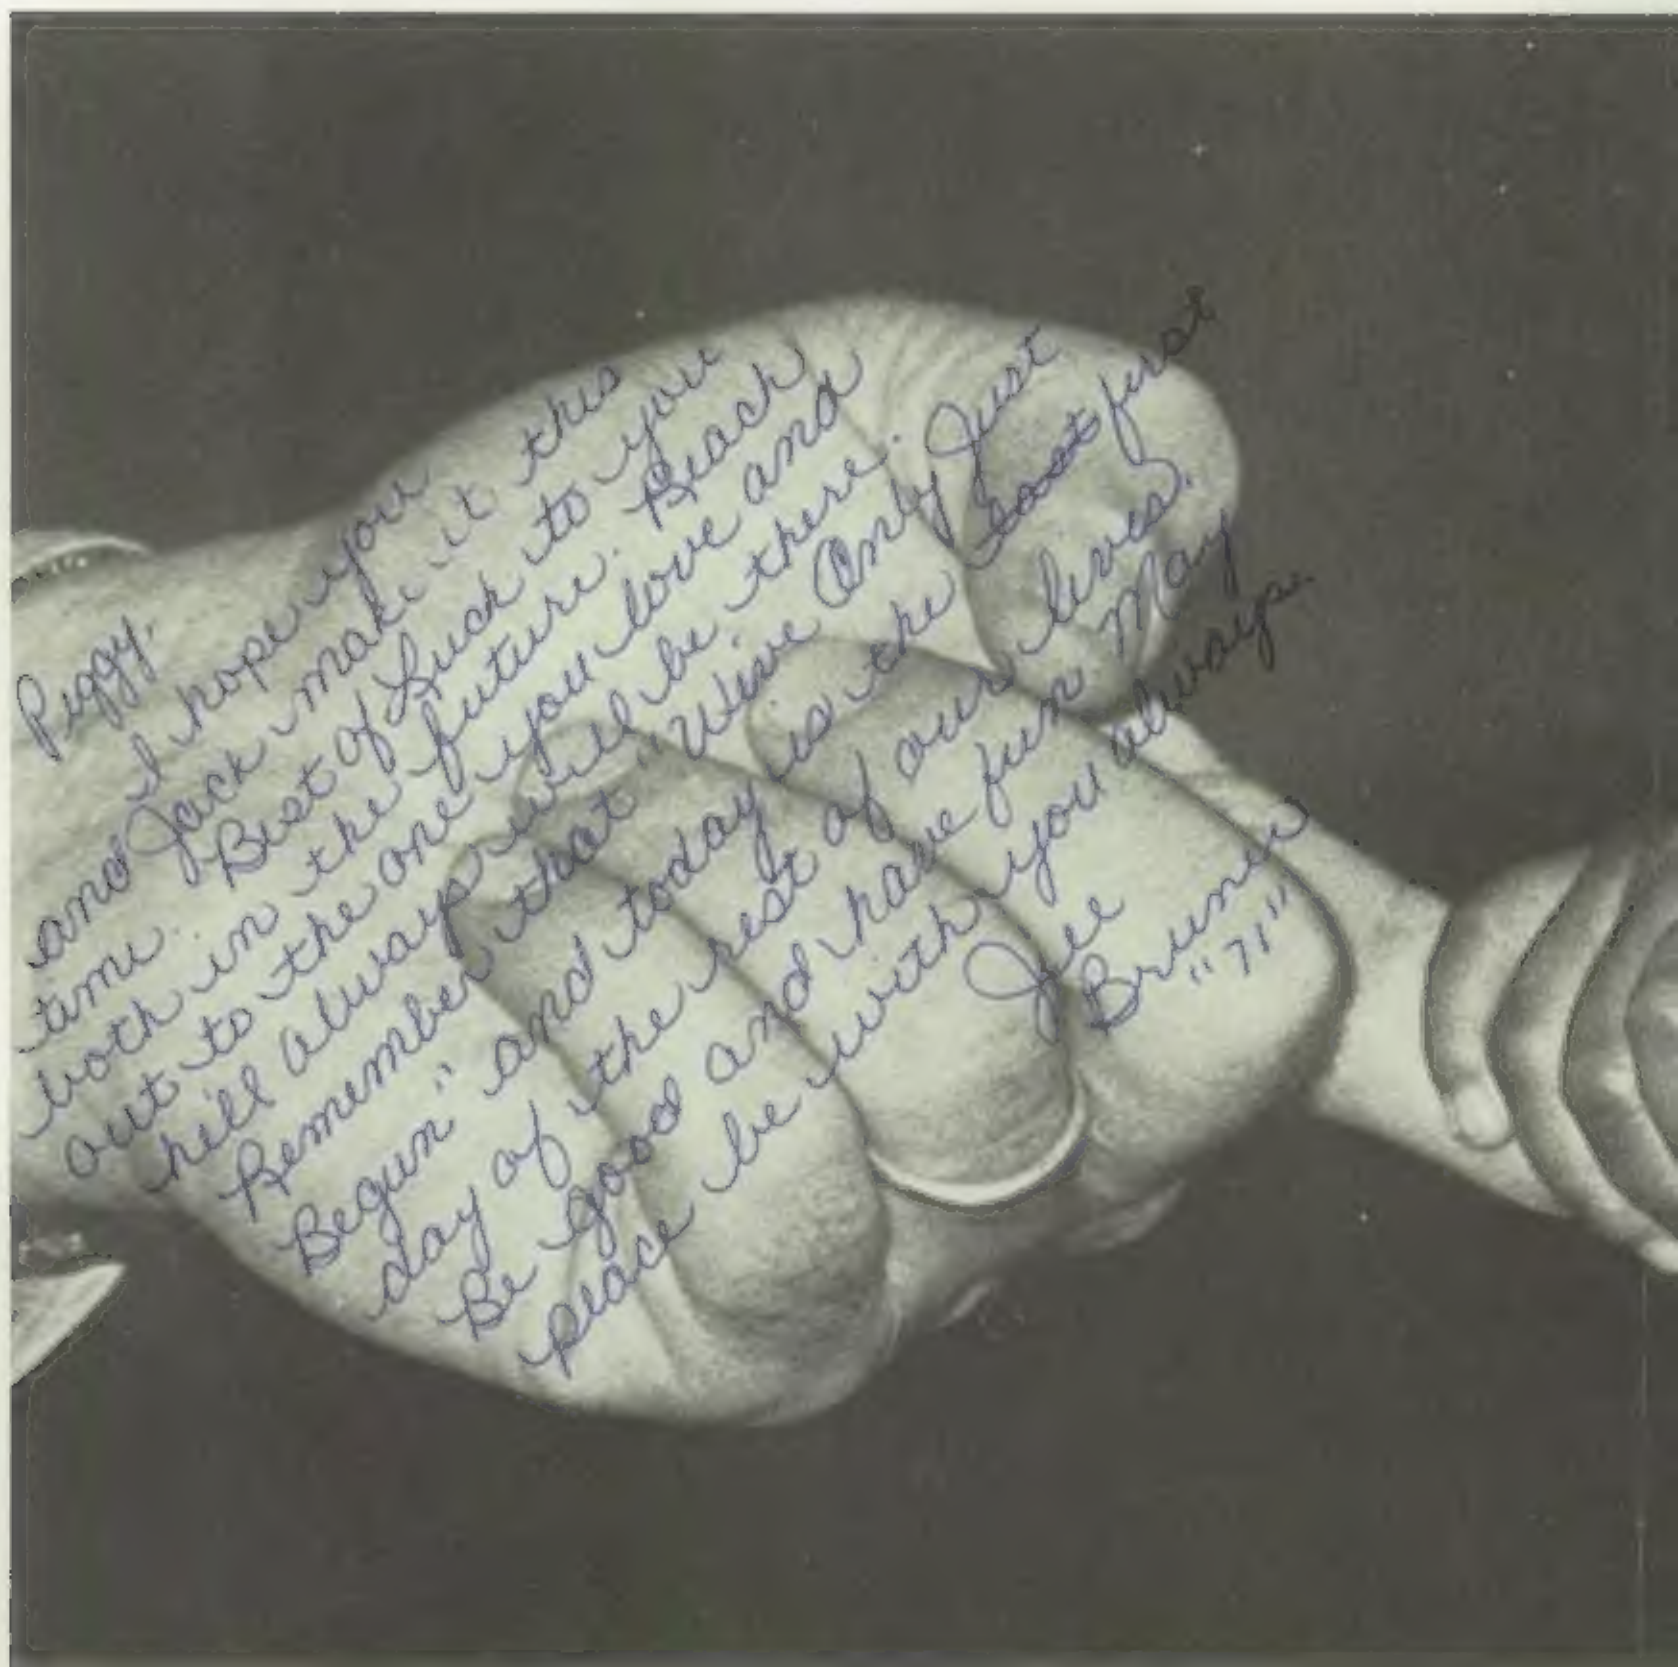 Peggy,
I hope you
and Jack make it this
time. Best of Luck to you
both in the future. Reach
out to the one you love and
he'll always will be there.
Remember that "We've Only Just
Begun" and today is the last first
day of the rest of our lives.
Be good and have fun May
peace be with you always.
Jee
Bruner
"71"